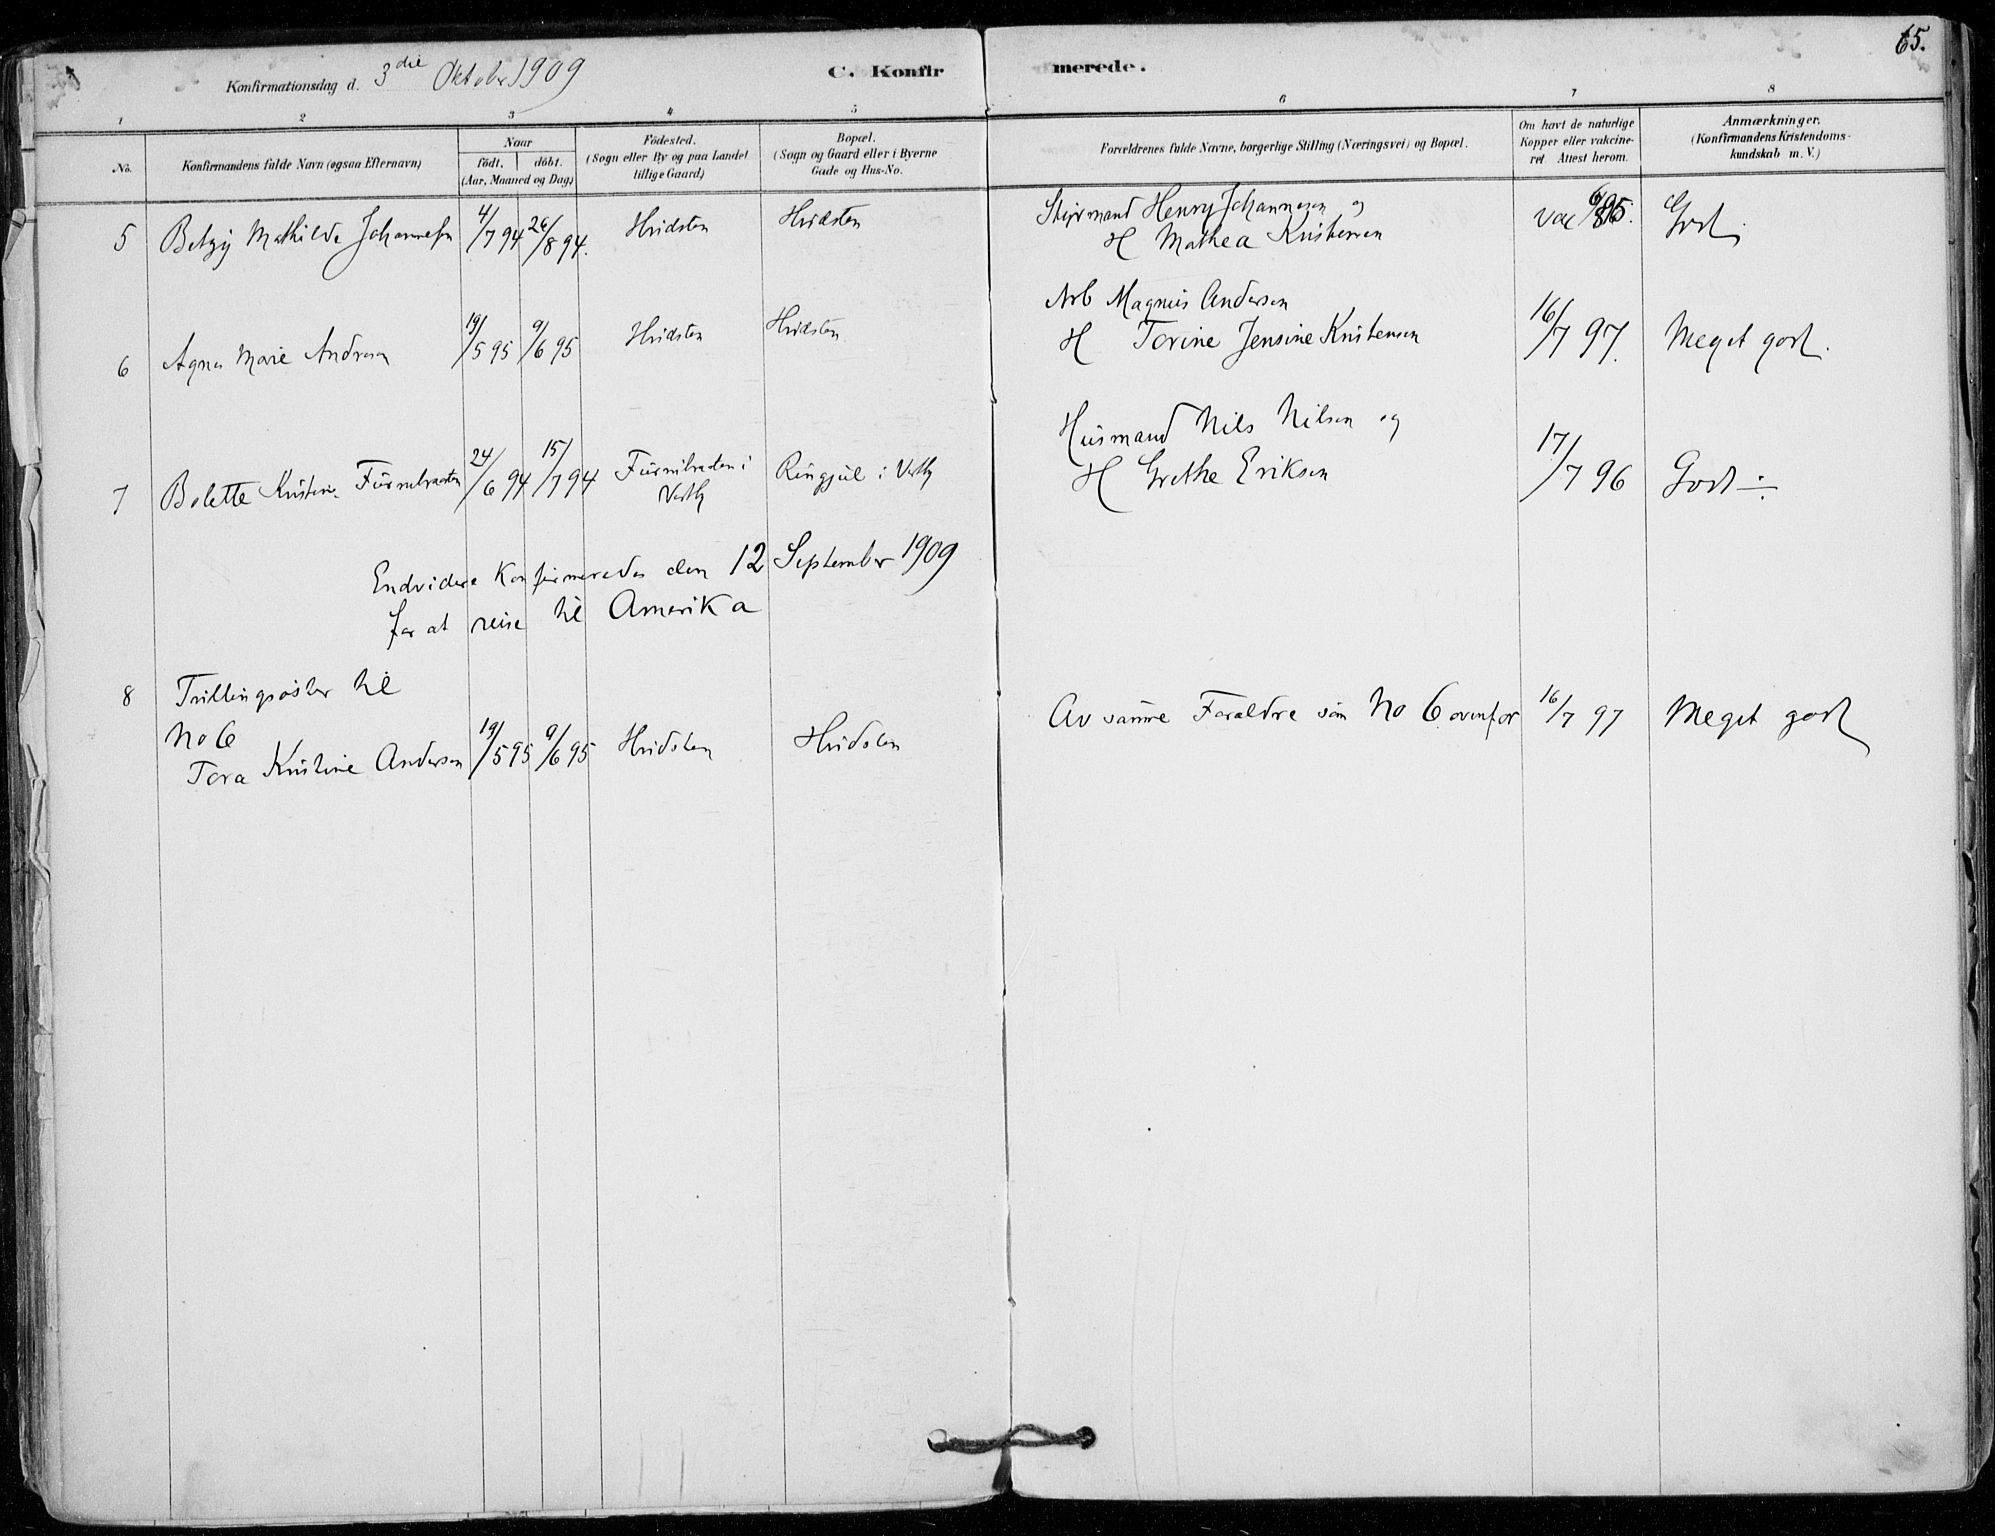 65.
Konfirmationsdag d. 3die Oktober 1909
C. Konfirmerede.
1 2 3 4 5 6 7 8
No.
Konfirmandens fulde Navn (ogsaa Efternavn)
Naar
født. døbt.
(Aar, Maaned og Dag)
Fødested.
(Sogn eller By og paa Landet
tillige Gaard)
Bopæl.
(Sogn og Gaard eller i Byerne
Gade og Hus-No.
Forældrenes fulde Navne, borgerlige Stilling (Næringsvei) og Bopæl.
Om havt de naturlige
Kopper eller vakcine-
ret Attest herom.
Anmærkninger.
(Konfirmandens Kristendoms-
kundskab m. V.)
5 Betzy Mathilde Johannesen 4/7 94 26/8 94. Hvidsten Hvidsten Styrmand Henry Johannesen og vac God.
H Mathea Kristensen
6 Agnes Marie Andersen 19/5 95 9/6 95 Hvidsten Hvidsten Arb Magnus Andersen 16/7 97. Meget god.
H Torine Jensine Kristensen
7 Bolette Kristine 24/6 94 15/7 94 i Vestby i Vestby Husmand Nils Nilsen og 17/7 96 God ÷
H Grethe Eriksen
Endvidere Konfirmeredes den 12 September 1909
for at reise til Amerika
8 Tvillingsøster til
No 6
Tora Kristine Andersen 19/5 95 9/6 95 Hvidsten Hvidsten Av samme Forældre som No 6 ovenfor 16/7 97 Meget god